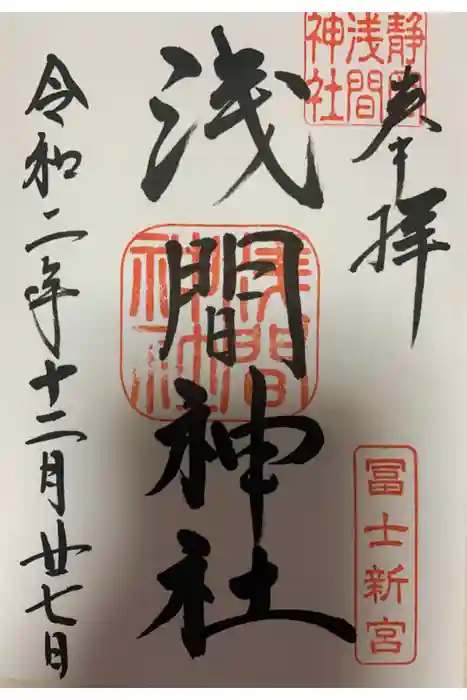 奉拝
静岡
浅間
神社
浅間神社
浅間
神社
冨士新宮
令和二年十二月廿七日